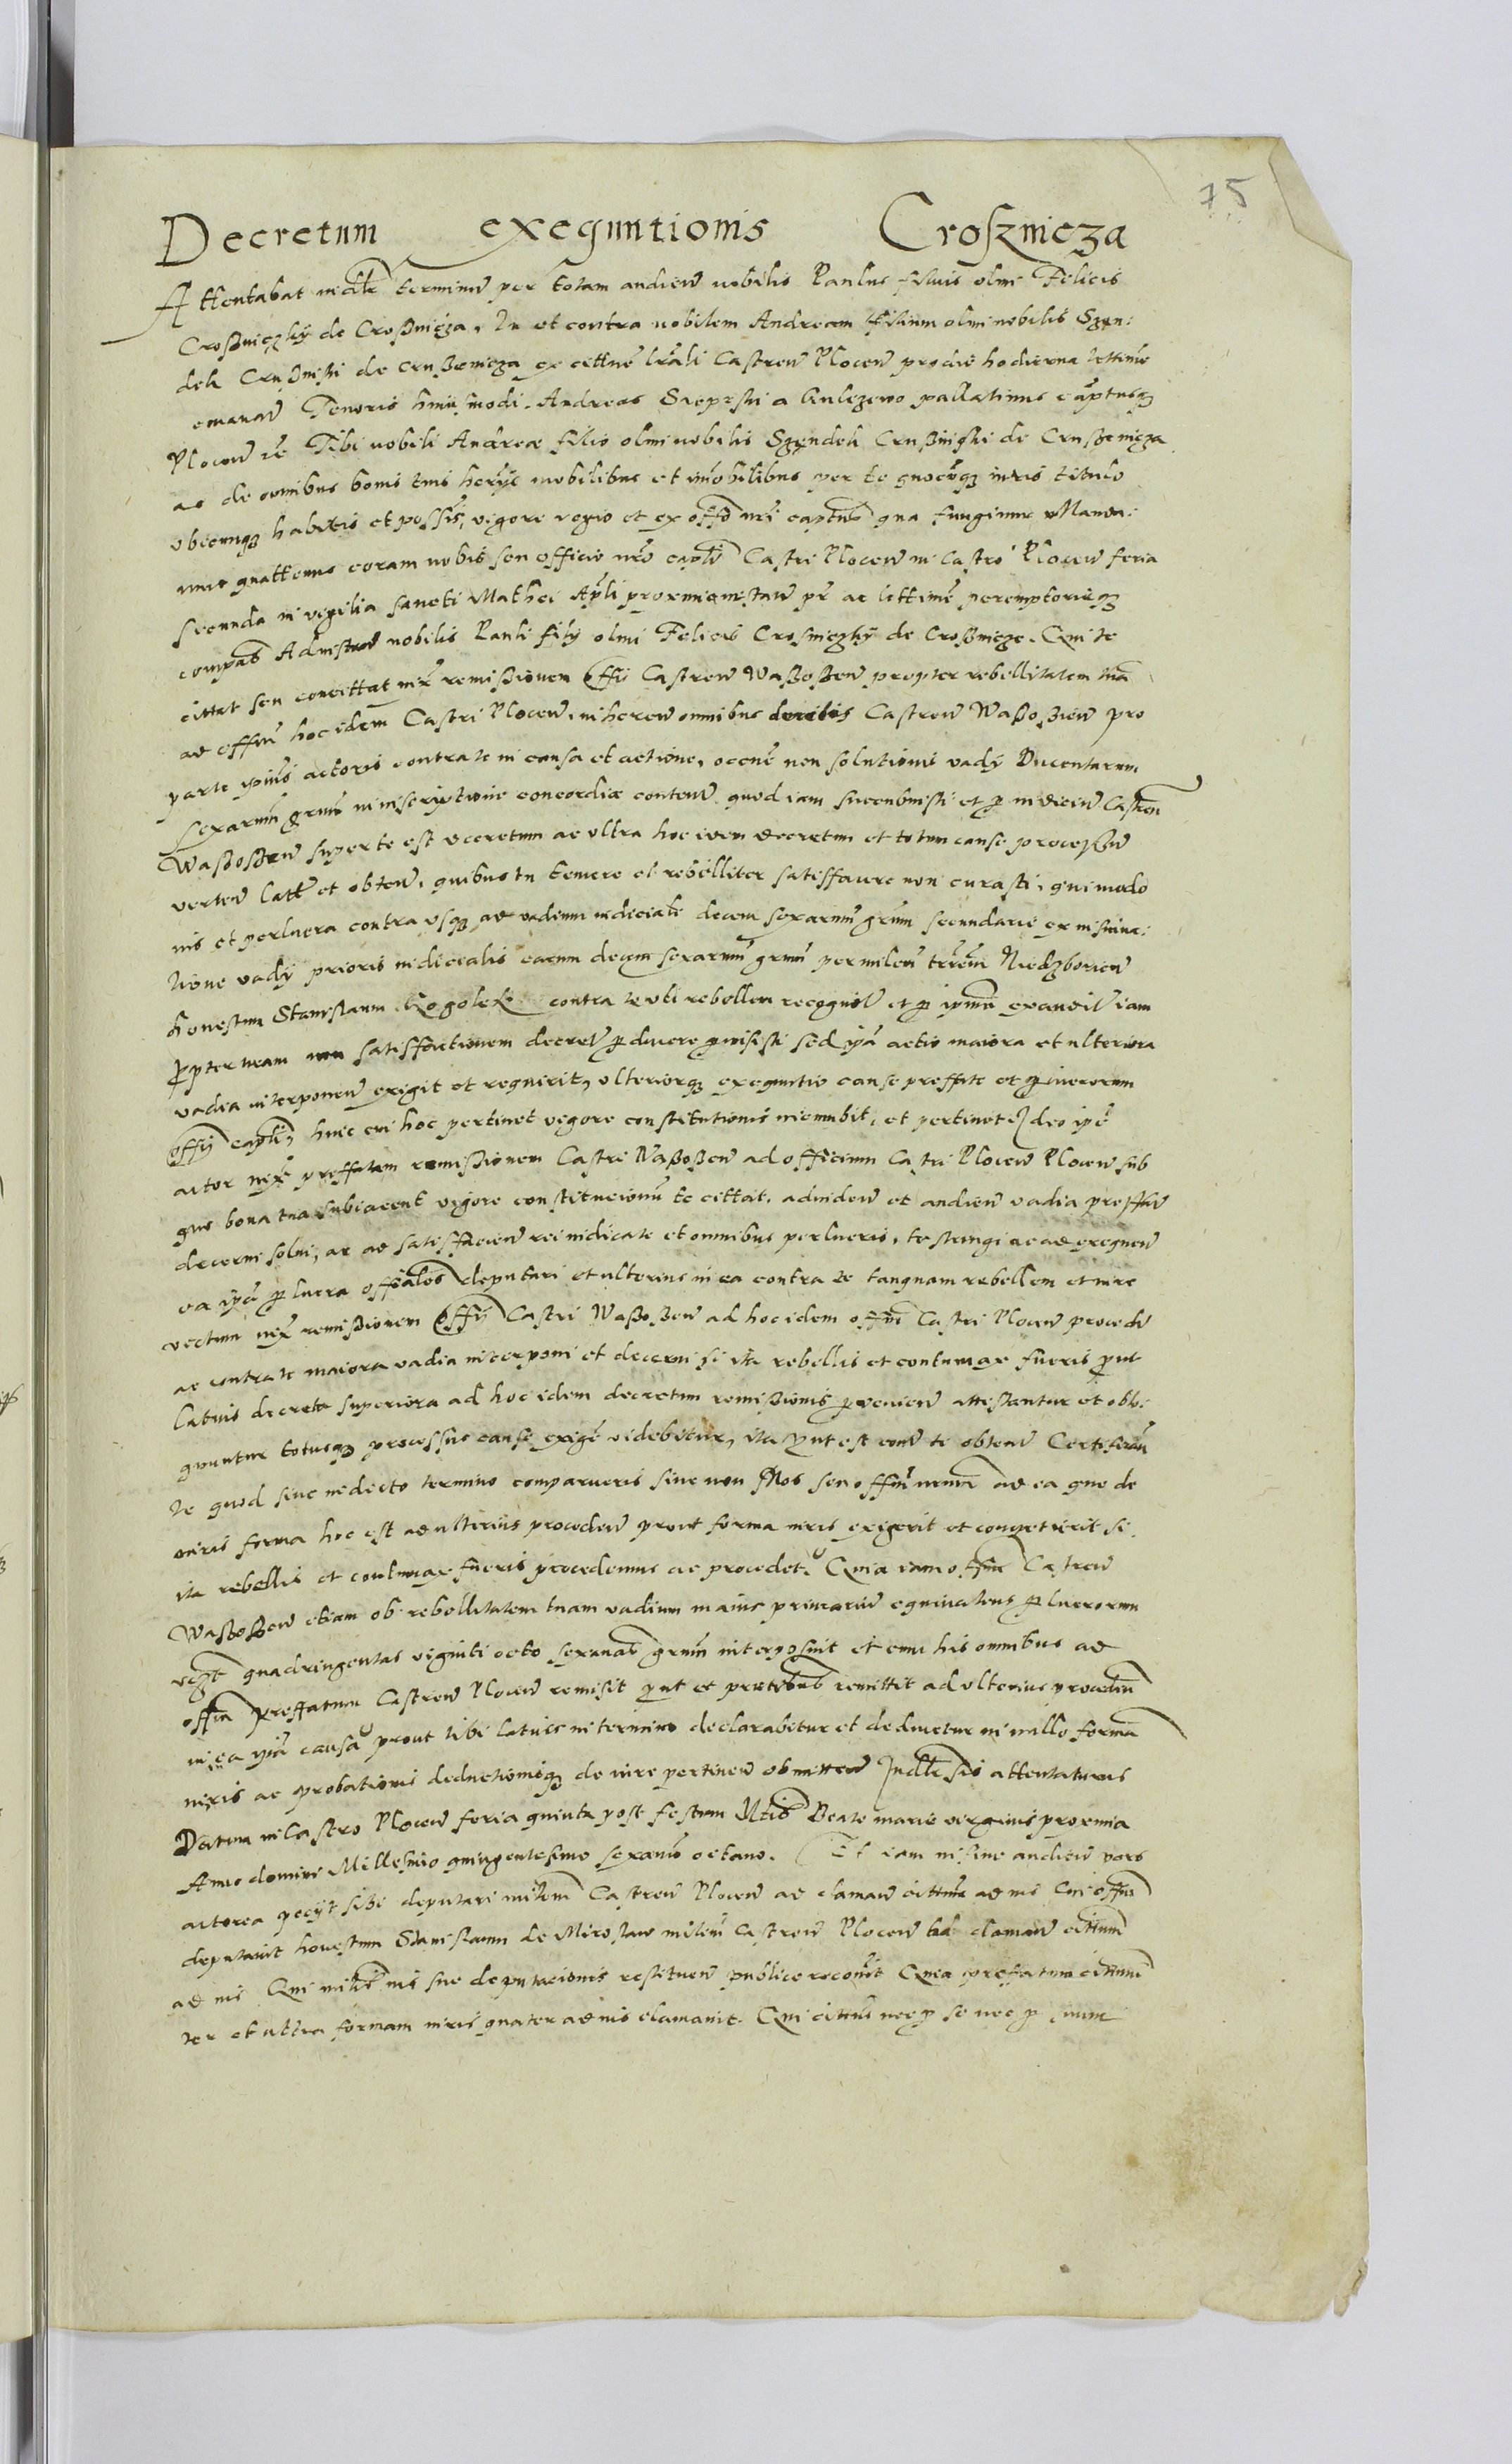 75
Decretum exequutionis Croßnicza
Attentabat iudicialiter terminum per totam audienciam nobilis Paulus filius olim Felicis
Croßniczky de Croßnicza, In et contra nobilem Andream filium olim nobilis Szen:
dek Crußniski de Crußenicza ex cittacione literali Castren Plocen pro die hodierna lettime
emanata Tenoris huiusmodi. Andreas Sieprski a Gulczewo pallatinus capitaneusque
Plocen etc Tibi nobili Andreae filio olim nobilis Szendek Crußniski de Crusßenicza
ac de omnibus bonis tuis haereditariis mobilibus et immobilibus per te quocunque iuris titulo
ubicunque habitis et possessis, vigore regio et ex officio nostri capitaneatus qua fungimur Manda:
mus quattenus coram nobis seu officio nostro capitaneali Castri Plocen in Castro Plocen feria
secunda in vigilia sancti Mathei Apostoli proxime instanti personaliter ac littime peremptorieque
compareas Ad instantiam nobilis Pauli filii olim Felicis Crosniczky de Croßnicze. Qui te
cittat seu concittat iuxta remissionem Officii Castren Waßoßen propter rebellitatem tuam
ad officium hoc idem Castri Plocen, inherendo omnibus decretis Castren Waßoßien pro
parte ipsius actoris contra te in causa et actione, occasione non solutionis vadii Ducentarum
Sexagenarum grossorum in inscriptione concordiae contenti quod iam succubuisti et per iudicium Castren
Waßoßen super te est decretum ac ultra hoc idem decretum et totum cause processum
vertentem latum et obtentum, quibus tu temere et rebelliter satisffacere non curasti, qui modo
ius et perlucra contra usque ad vadium iudiciale decem sexagenarum grossorum secundarie ex
tione vadii prioris iudicialis earum decem sexagenarum grossorum per ministerialem terrestrem Niedzborien
honestum Stanislaum Rogolek contra te uti rebellem recognitum et per ipsum exauditum iam
propter tuam non satisffactionem decretum perducere permisisti sed ipsa actio maiora et ulteriora
vadia interponenda exigit et requirit, ulteriorque exequutio cause preffate et perlucrorum
officii capitanei, huic cui hoc pertinet vigore constitutionis incumbit, et pertinet Ideo ipse
actor iuxta preffatam remissionem Castri Waßoßen ad officium Castri Plocen Plocen sub
quo bona tua subiacent vigore constitucionum te cittat, ad videndum et audiendum vadia preffata
decerni solui, ac ad satisffaciendum rei iudicate et omnibus perlucris, te stringi ac ad exequendum
ea ipsa perlucra officiales deputari et ulterius in ea contra te tanquam rebellem et iure
victum iuxta remissionem Officii Castri Waßoßen ad hoc idem officium Castri Plocen procedi
ac contra te maiora vadia interponi et decerni si ita rebellis et contumax fueris prout
latius decreta superiora ad hoc idem decretum remissionis pervenientia attestantur et obli:
quuntur totusque processus cause exigere videbitur, ita prout est contra te obtentum Certificamus
te quod siue in dicto termino comparueris siue non Nos seu officium nostrum ad ea que de
iuris forma hoc est ad ulterius procedendum prout forma iuris exigerit et competierit si
ita rebellis et contumax fueris procedemus ac procedet. Quia iam officium Castren
Waßoßen etiam ob rebellitatem tuam vadium maius primarium equiualens perlucrorum
videlicet quadringentas viginti octo sexagenas grossorum interposuit et cum his omnibus ad
officium preffatum Castren Plocen remisit prout et presentibus remittit ad ulterius procedendum
in ea ipsa causa prout tibi latius in termino declarabitur et deducetur in nullo forma
iuris ac probationis deductionisque de iure pertinenti obmittendo Iudicialiter sis attentaturus
Datum in Castro Plocen feria quinta post festum Natiuitatis Beate marie virginis proxima
Anno domini Millesimo quingentesimo sexagesimo octauo. Et iam in fine audiencie pars
actorea peciit sibi deputari ministerialem Castren Plocen ad clamandum cittatum ad ius Cui officium
deputauit honestum Stanislaum de Miroslaw ministerialem Castren Plocen ad clamandum cittatum
ad ius Qui ministerialis ius sue deputacionis restituendo publice recognouit Quia prefatum cittatum
ter et ultra formam iuris quater ad ius clamauit. Qui cittatus neque per se nec per suum